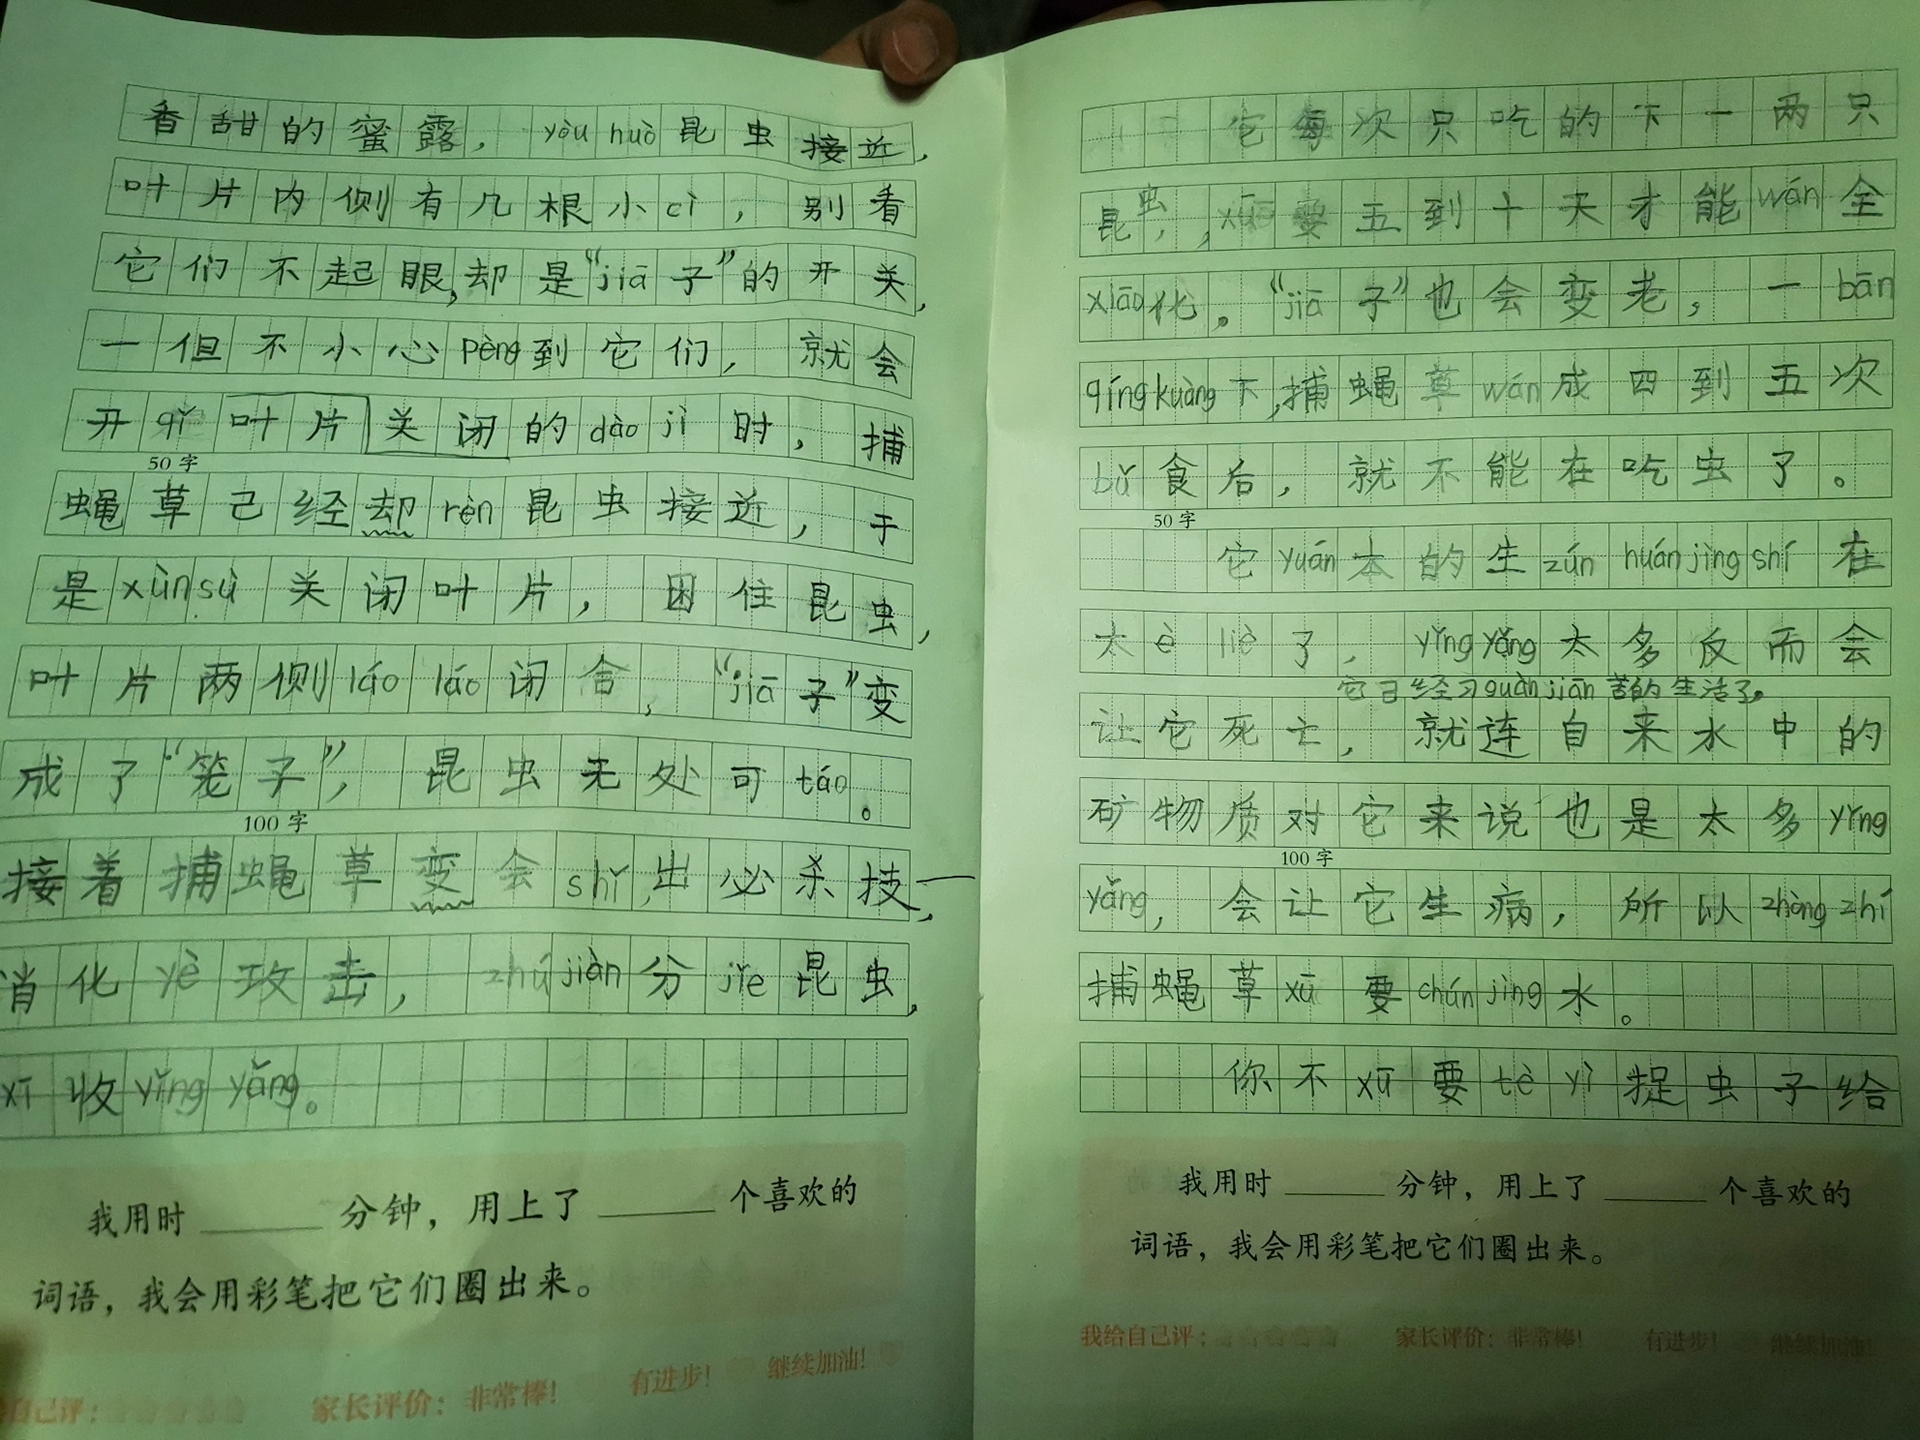 香甜的蜜露， yòu huò昆虫接近，
叶片内侧有几根小cì，别看
它们不起眼，却是“jiā子”的开关，
一但不小心pèng到它们，就会
开qǐ叶片关闭的dào jì时，捕
50字
蝇草己经却rèn昆虫接近，于
是xùn sù关闭叶片，困住昆虫，
叶片两侧láo láo闭合，“jiā子”变
成了“笼子”，昆虫无处可táo。
100字
接着捕蝇草变会shǐ出必杀技—，
消化yè攻击，zhú jiàn分jiě昆虫，
xī收yǐng yǎng。
我用时______分钟，用上了______个喜欢的
词语，我会用彩笔把它们圈出来。
自己评：
家长评价：非常棒！ 有进步！ 继续加油！
它每次只吃的下一两只
昆虫，，xū要五到十天才能wán全
xiāo化。“jiā子”也会变老，一bān
qíng kuàng下，捕蝇草wán成四到五次
bǔ食后，就不能在吃虫了。
50字
它yuán本的生zún huán jìng shí在
太è liè了，yǐng yǎng太多反而会
它已经习guàn jiān苦的生活了。
让它死亡，就连自来水中的
矿物质对它来说也是太多yǐng
100字
yǎng，会让它生病，所以zhòng zhí
捕蝇草xū要chún jìng水。
你不xū要tè yì捉虫子给
我用时______分钟，用上了______个喜欢的
词语，我会用彩笔把它们圈出来。
我给自己评：
家长评价：非常棒！ 有进步！ 继续加油！